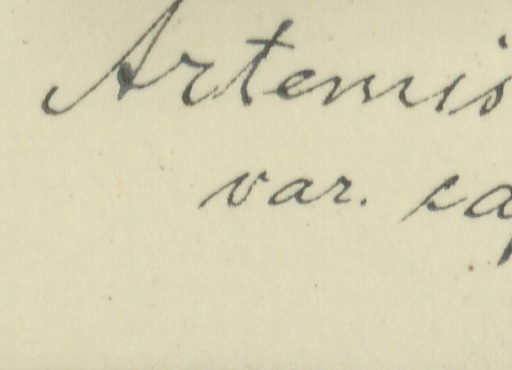 Artemis
var. ca